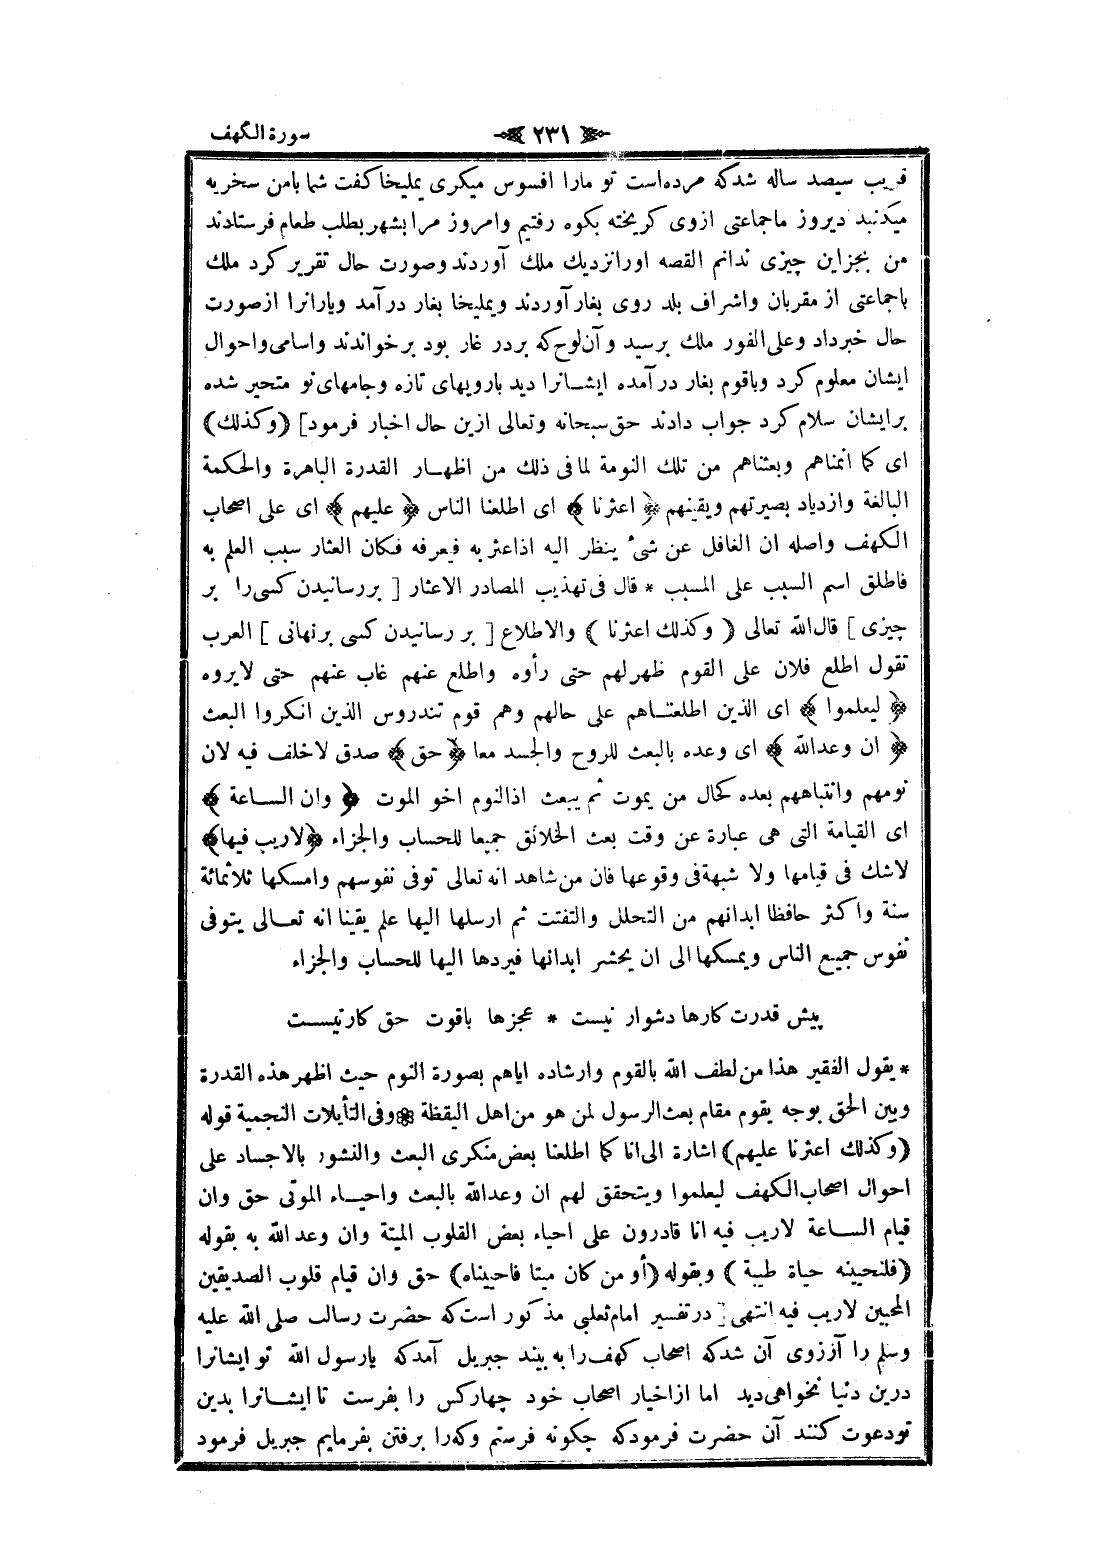 سورة الكهف ﴿ ٢٣١ ﴾
قريب سيصد ساله شدكه مرده‌است تو مارا افسوس ميكرى يمليخا كفت شما بامن سخريه
ميكنيد ديروز ماجماعتى ازوى كريخته بكوه رفتيم وامروز مرا بشهر بطلب طعام فرستادند
من بجزاين چيزى ندانم القصه اورانزديك ملك آوردند وصورت حال تقرير كرد ملك
باجماعتى از مقربان واشراف بلد روى بغار آوردند ويمليخا بغار در آمد ويارانرا ازصورت
حال خبرداد وعلى الفور ملك برسيد وآن‌لوح كه بردر غار بود برخواندند واسامى واحوال
ايشان معلوم كرد وباقوم بغار در آمده ايشانرا ديد بارويهاى تازه وجامهاى نو متحير شده
برايشان سلام كرد جواب دادند حق سبحانه وتعالى ازين حال اخبار فرمود] (وكذلك)
اى كما انمناهم وبعثناهم من تلك النومة لما فى ذلك من اظهار القدرة الباهرة والحكمة
البالغة وازدياد بصيرتهم ويقينهم ﴿ اعثرنا ﴾ اى اطلعنا الناس ﴿ عليهم ﴾ اى على اصحاب
الكهف واصله ان الغافل عن شئ ينظر اليه اذاعثر به فيعرفه فكان العثار سبب العلم به
فاطلق اسم السبب على المسبب * قال فى تهذيب المصادر الاعثار [ بررسانيدن كسى را بر
چيزى ] قال الله تعالى ( وكذلك اعثرنا ) والاطلاع [ بر رسانيدن كسى برنهانى ] العرب
تقول اطلع فلان على القوم ظهر لهم حتى رأوه واطلع عنهم غاب عنهم حتى لايروه
﴿ ليعلموا ﴾ اى الذين اطلعناهم على حالهم وهم قوم تندروس الذين انكروا البعث
﴿ ان وعدالله ﴾ اى وعده بالبعث للروح والجسد معا ﴿ حق ﴾ صدق لاخلف فيه لان
نومهم وانتباههم بعده كحال من يموت ثم يبعث اذالنوم اخو الموت ﴿ وان الساعة ﴾
اى القيامة التى هى عبارة عن وقت بعث الخلائق جميعا للحساب والجزاء ﴿لاريب فيها﴾
لاشك فى قيامها ولا شبهة فى وقوعها فان من شاهد انه تعالى توفى نفوسهم وامسكها ثلاثمائة
سنة واكثر حافظا ابدانهم من التحلل والتفتت ثم ارسلها اليها علم يقينا انه تعالى يتوفى
نفوس جميع الناس ويمسكها الى ان يحشر ابدانها فيردها اليها للحساب والجزاء
پيش قدرت كارها دشوار نيست * عجزها باقوت حق كارنيست
* يقول الفقير هذا من لطف الله بالقوم وارشاده اياهم بصورة النوم حيث اظهر هذه القدرة
وبين الحق بوجه يقوم مقام بعث الرسول لمن هو من اهل اليقظة * وفى التأيلات النجمية قوله
(وكذلك اعثرنا عليهم) اشارة الى انا كما اطلعنا بعض منكرى البعث والنشور بالاجساد على
احوال اصحاب الكهف ليعلموا ويتحقق لهم ان وعدالله بالبعث واحياء الموتى حق وان
قيام الساعة لاريب فيه انا قادرون على احياء بعض القلوب الميتة وان وعد الله به بقوله
(فلنحيينه حياة طيبة ) وبقوله (أو من كان ميتا فاحييناه) حق وان قيام قلوب الصديقين
المحبين لاريب فيه انتهى [ در تفسير امام ثعلبى مذكور است كه حضرت رسالت صلى الله عليه
وسلم را آرزوى آن شدكه اصحاب كهف را به بيند جبريل آمدكه يارسول الله تو ايشانرا
درين دنيا نخواهى ديد اما ازاخيار اصحاب خود چهاركس را بفرست تا ايشانرا بدين
تودعوت كنند آن حضرت فرمودكه چكونه فرستم وكه را برفتن بفرمايم جبريل فرمود